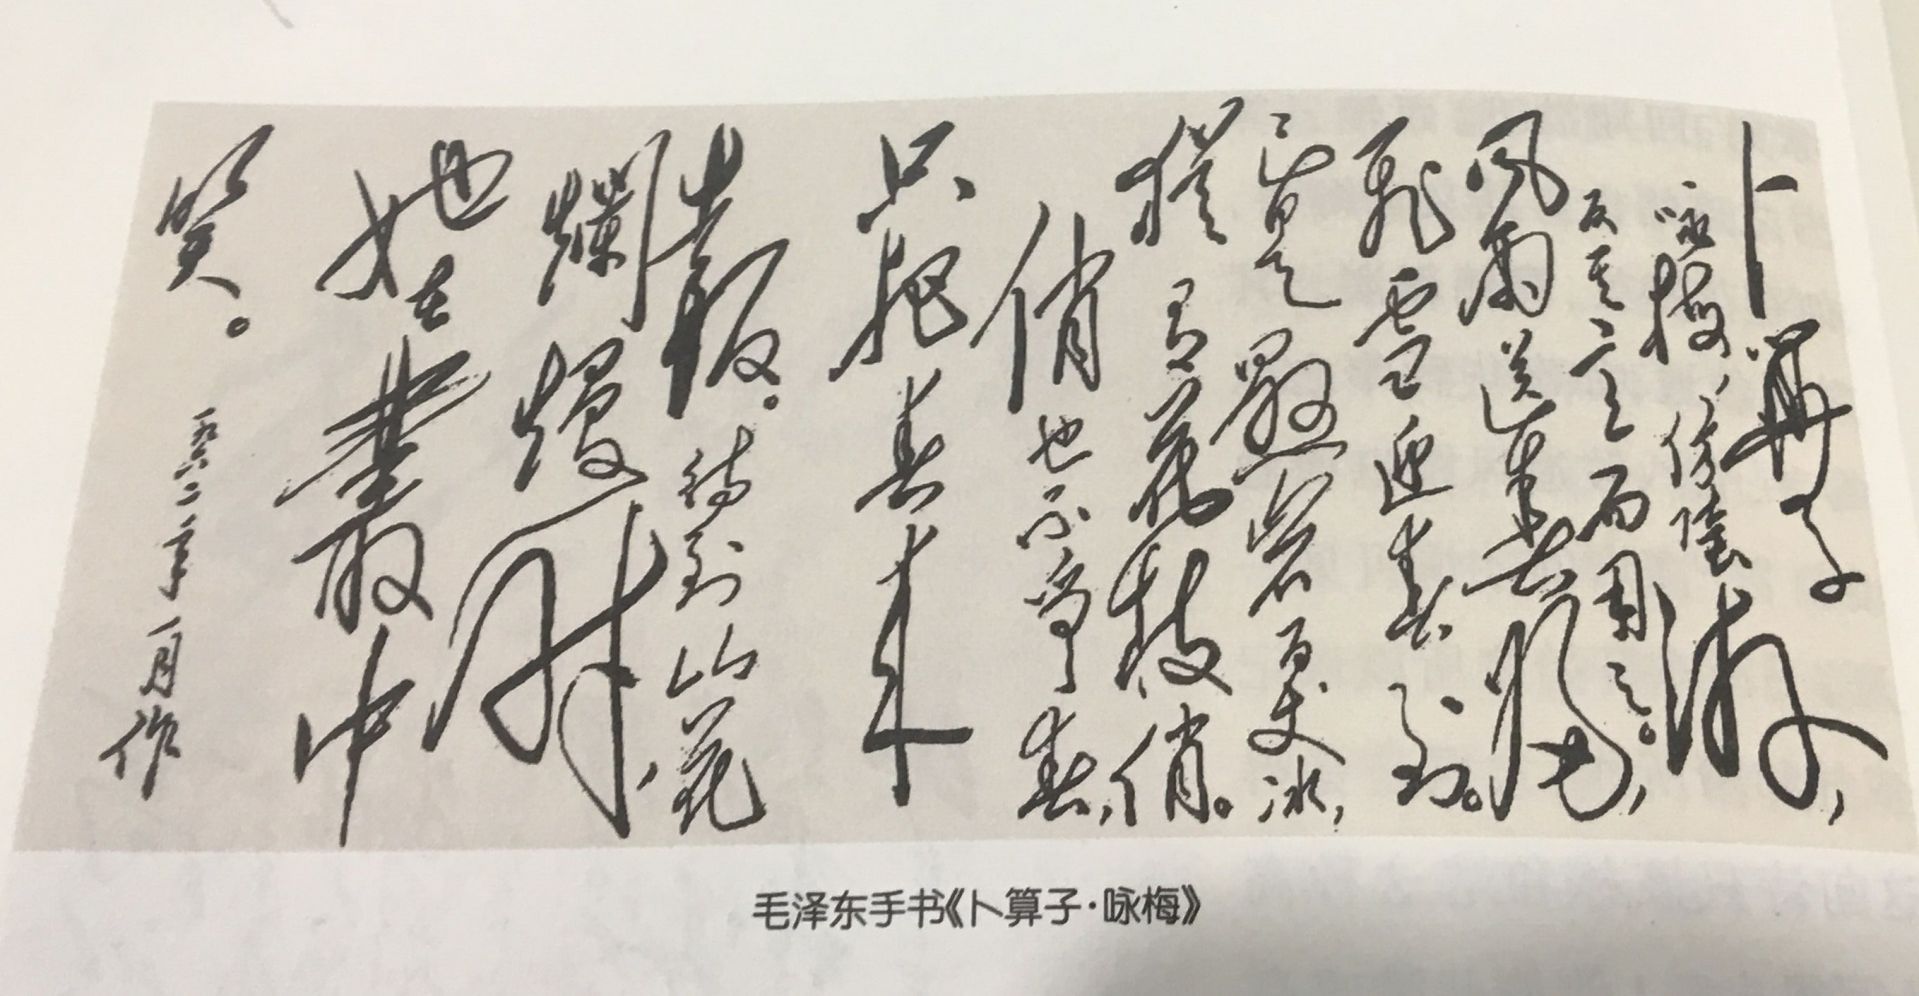 卜算子
咏梅、仿陸游，
反其意而用之。
风雨送春归，
飛雪迎春到。
已是懸岩百丈冰，
猶有花枝俏。
俏也不争春，
只把春来
報。待到山花
爛熳时，
她在叢中
笑。
一九六二年一月作
毛泽东手书《卜算子·咏梅》